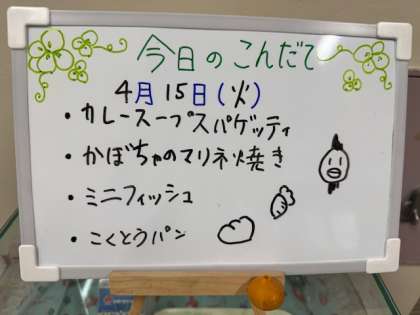 今日のこんだて
4月15日(火)
・カレースープスパゲッティ
・かぼちゃのマリネ焼き
・ミニフィッシュ
・こくとうパン